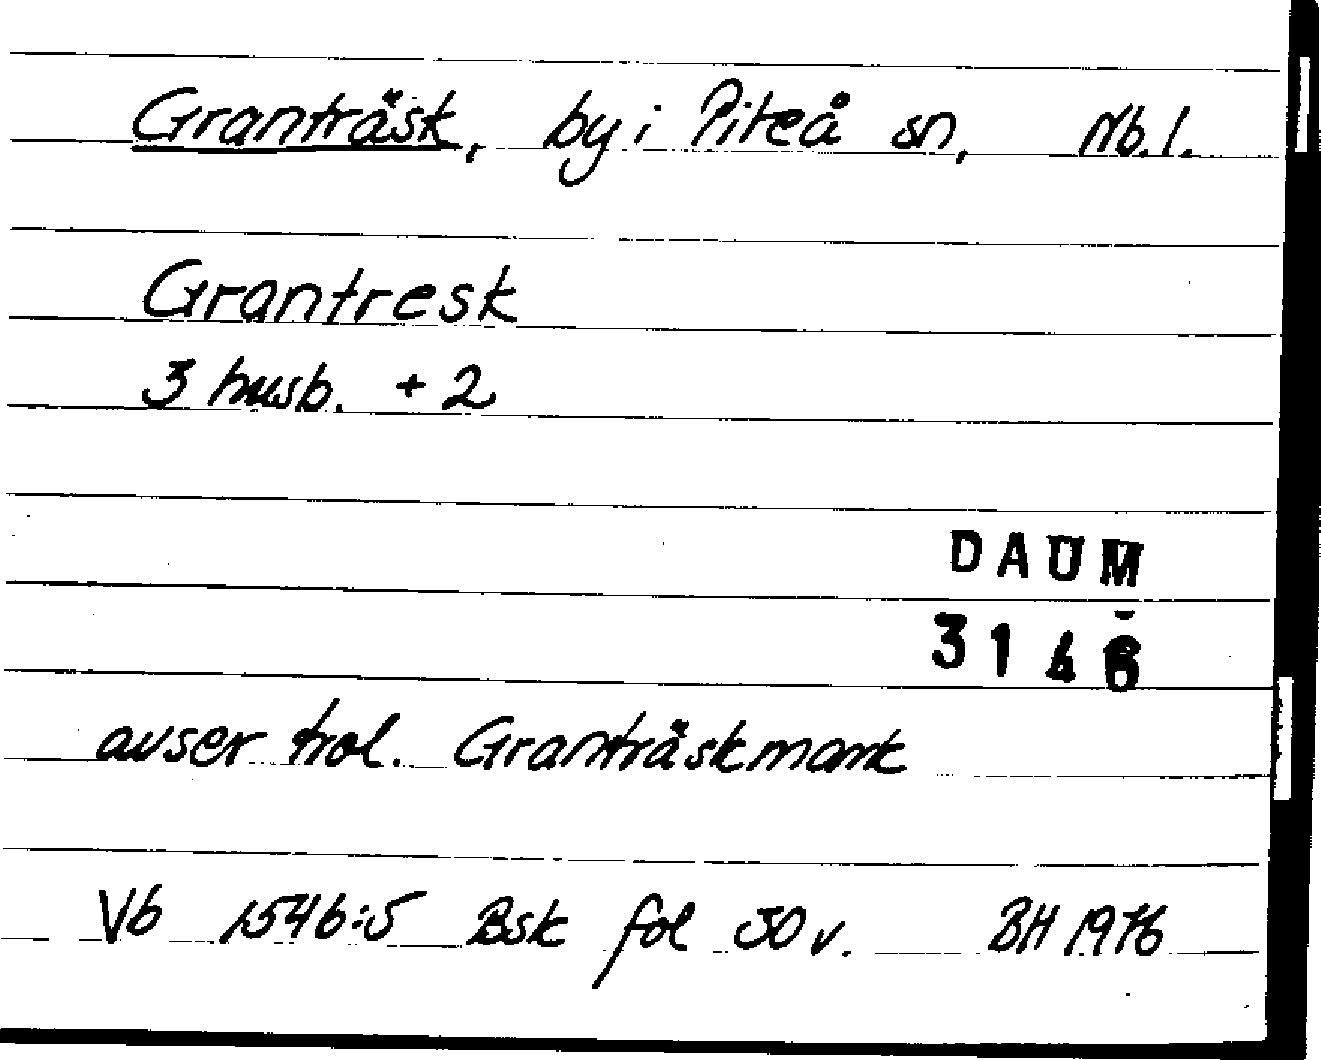 Granträsk, by i Piteå sn, Nb.l.
Grantresk
3 husb. + 2
DAUM
3146
avser trol. Granträskmark
Vb 1546:5 Bsk fol 50 v. BH 1976